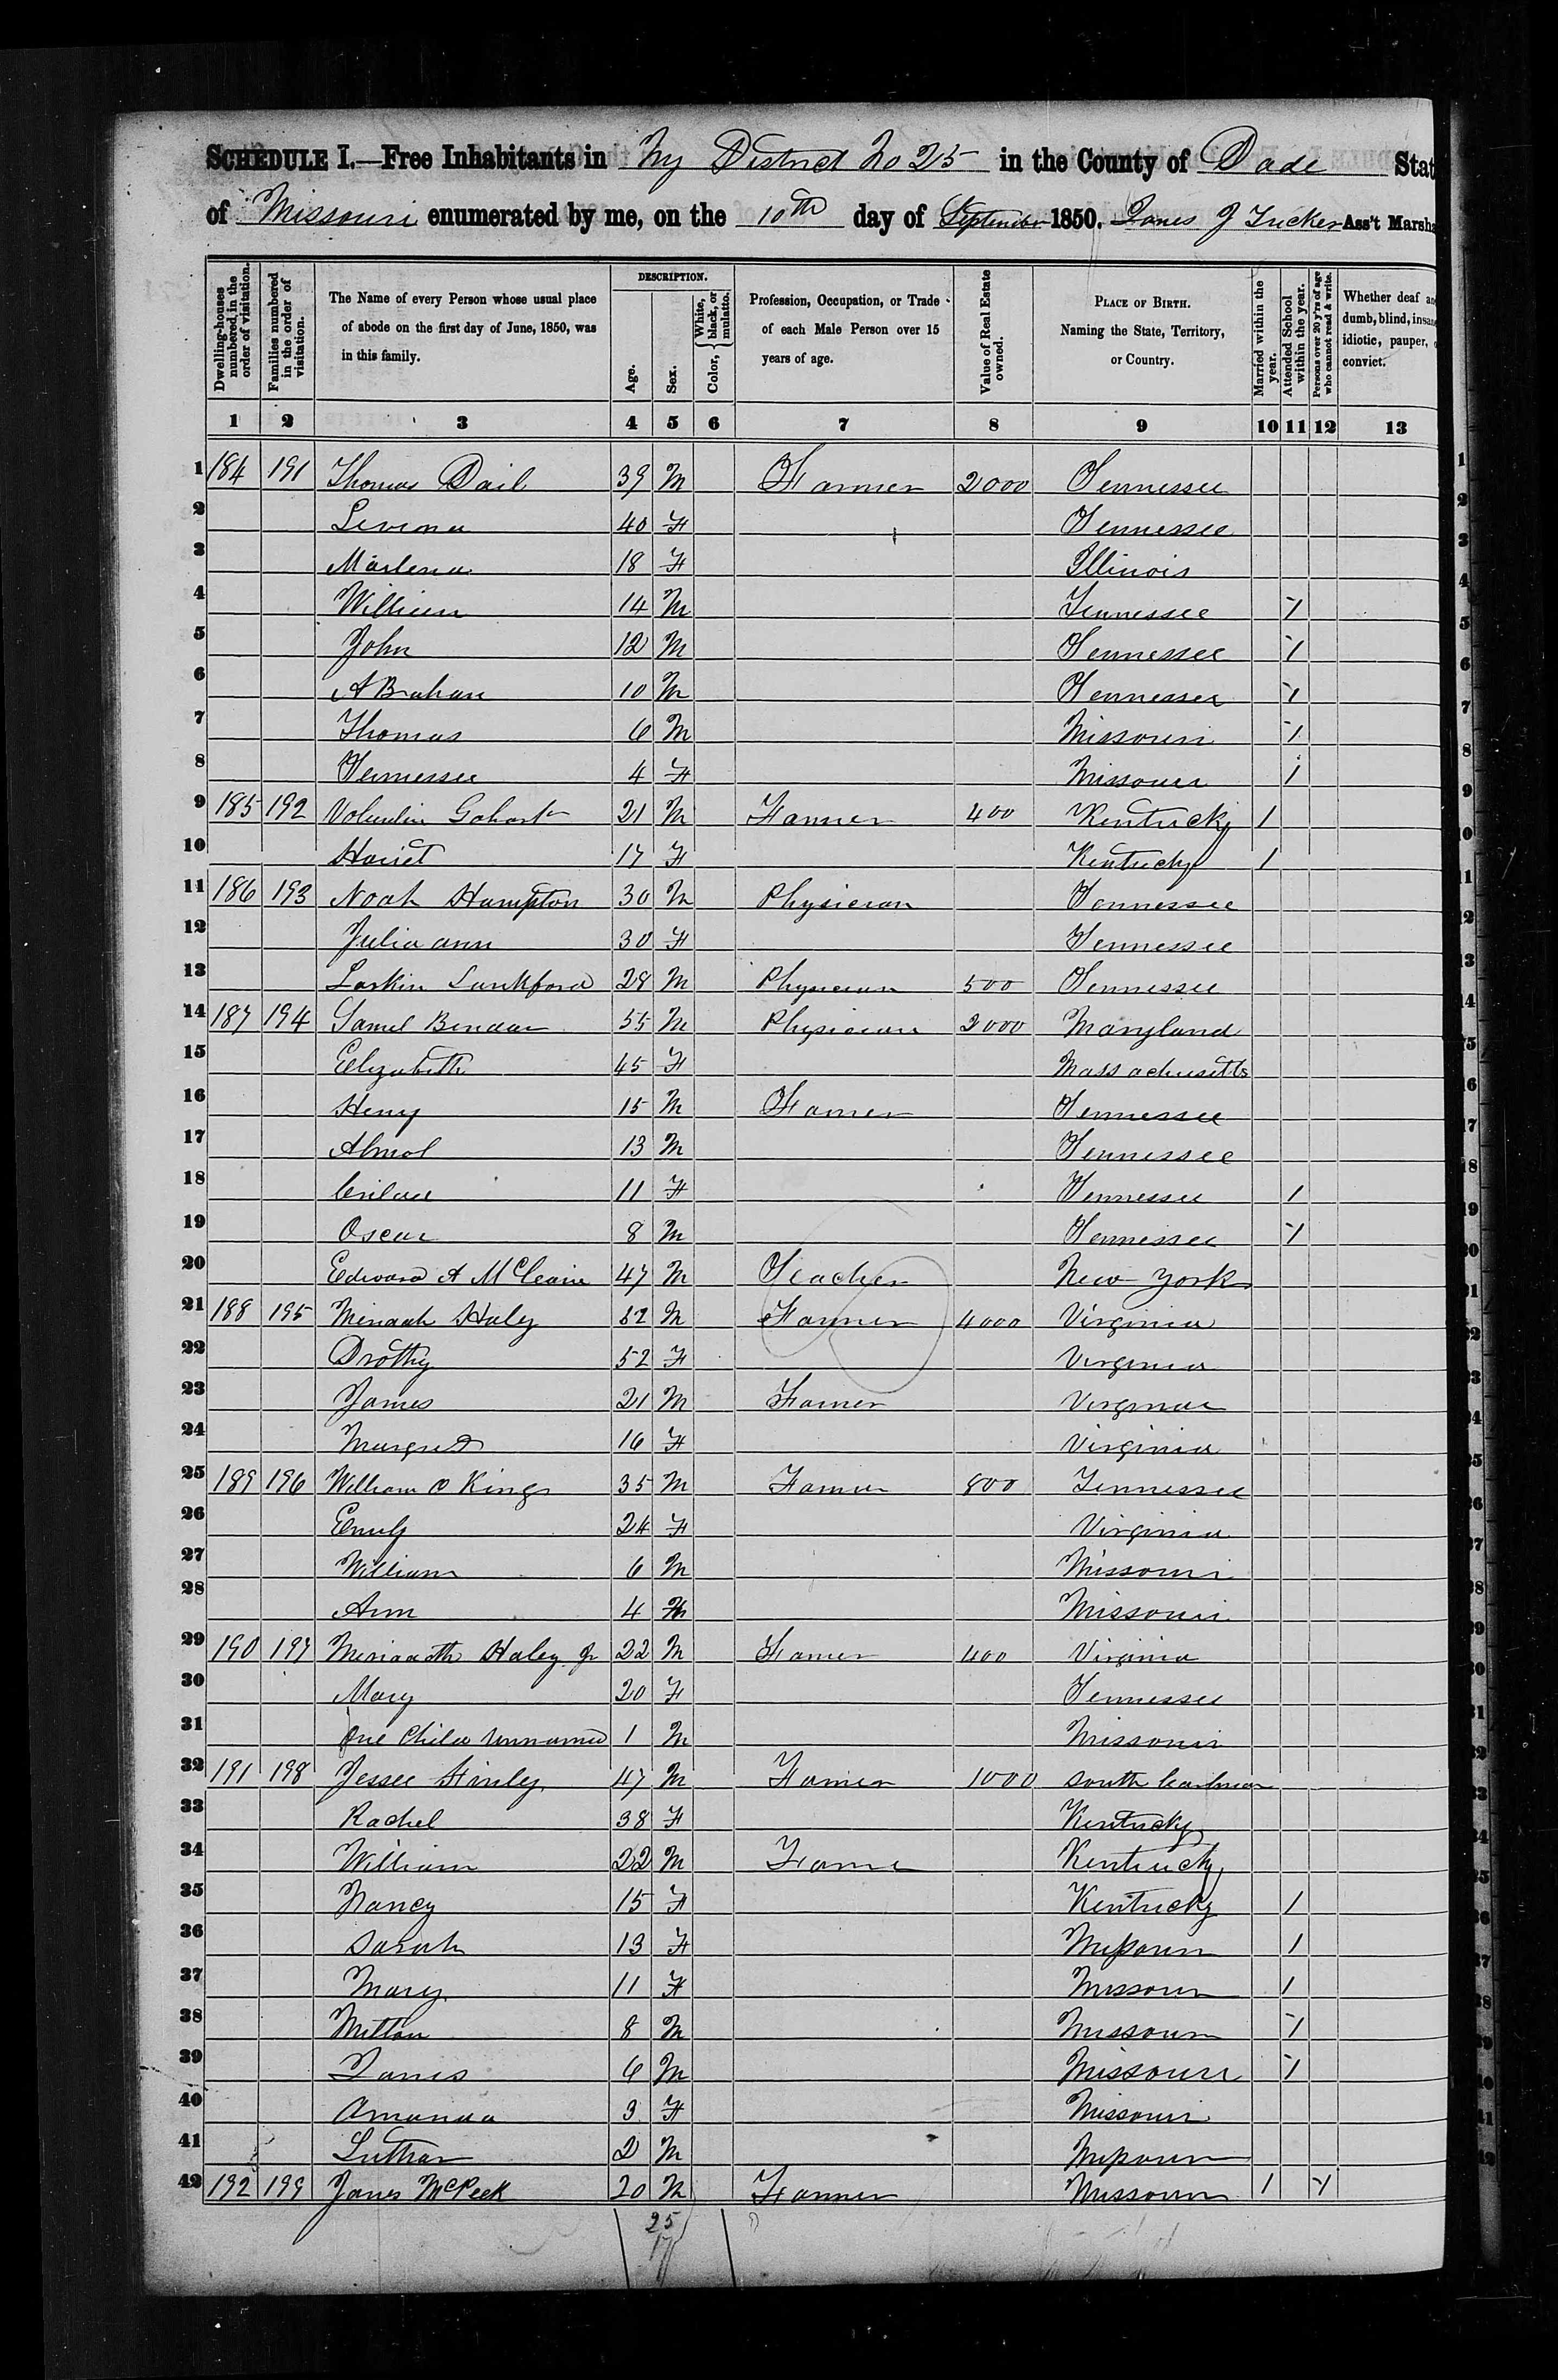 SCHEDULE I.—Free Inhabitants in My District No 25 in the County of Dade Stat
of Missouri enumerated by me, on the 10th day of September 1850. James J Tucker Ass't Marsha
Dwelling-houses numbered in the order of visitation.
Families numbered in the order of visitation.
The Name of every Person whose usual place of abode on the first day of June, 1850, was in this family.
DESCRIPTION.
Age.
Sex.
Color, { White, black, or mulatto.
Profession, Occupation, or Trade of each Male Person over 15 years of age.
Value of Real Estate owned.
PLACE OF BIRTH. Naming the State, Territory, or Country.
Married within the year.
Attended School within the year.
Persons over 20 y'rs of age who cannot read & write.
Whether deaf and dumb, blind, insane, idiotic, pauper, convict.
1 2 3 4 5 6 7 8 9 10 11 12 13
1 184 191 Thomas Dail 39 M Farmer 2000 Tennessee
2 Levina 40 F Tennessee
3 Marlena 18 F Illinois
4 William 14 M Tennessee 1
5 John 12 M Tennessee 1
6 ABraham 10 M Tennessee 1
7 Thomas 6 M Missouri 1
8 Tennessee 4 F Missouri 1
9 185 192 Gohart 21 M Farmer 400 Kentucky 1
10 Hariet 17 F Kentucky 1
11 186 193 Noah Hampton 30 M Physician Tennessee
12 Julia ann 30 F Tennessee
13 Larkin Lankford 28 M Physician 500 Tennessee
14 187 194 Samel 55 M Physician 2000 Maryland
15 Elizabeth 45 F Massachusetts
16 Henry 15 M Farmer Tennessee
17 13 M Tennessee
18 11 F Tennessee 1
19 Oscar 8 M Tennessee 1
20 Edward A McClain 47 M Teacher New York
21 188 195 Haley 52 M Farmer 4000 Virginia
22 Drothy 52 F Virginia
23 James 21 M Farmer Virginia
24 Margret 16 F Virginia
25 189 196 William O King 35 M Farmer 800 Tennessee
26 Emily 24 F Virginia
27 William 6 M Missouri
28 Ann 4 F Missouri
29 190 197 Haley Jr 22 M Farmer 400 Virginia
30 Mary 20 F Tennessee
31 One Child unnamed 1 M Missouri
32 191 198 Jessee Finley 47 M Farmer 1000 South Carlinia
33 Rachel 38 F Kentucky
34 William 22 M Farmer Kentucky
35 Nancy 15 F Kentucky 1
36 Sarah 13 F Missouri 1
37 Mary 11 F Missouri 1
38 Milton 8 M Missouri 1
39 James 6 M Missouri 1
40 Amanda 3 F Missouri
41 Luthar 2 M Missouri
42 192 199 James McPeek 20 M Farmer Missouri 1 1
25
17